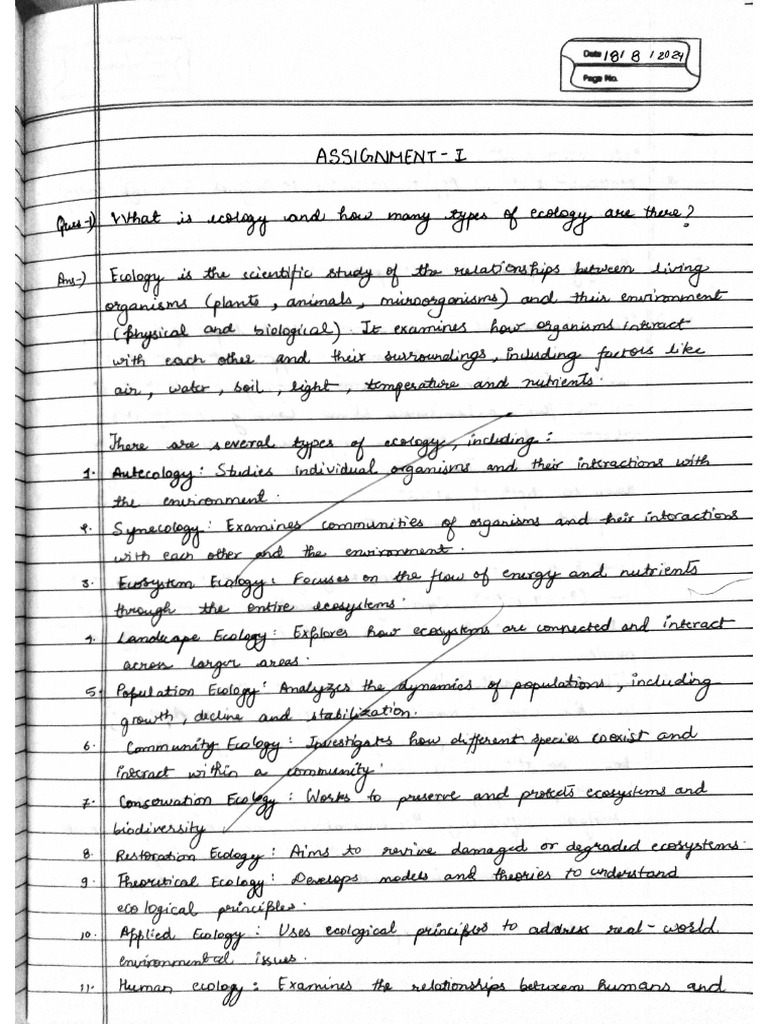 Date 18/8/2024
Page No.
ASSIGNMENT-I
Ques-1) What is ecology and how many types of ecology are there?
Ans-) Ecology is the scientific study of the relationships between living
organisms (plants, animals, microorganisms) and their environment
(physical and biological). It examines how organisms interact
with each other and their surroundings, including factors like
air, water, soil, light, temperature and nutrients.
There are several types of ecology, including:
1. Autecology: Studies individual organisms and their interactions with
the environment.
2. Synecology: Examines communities of organisms and their interactions
with each other and the environment.
3. Ecosystem Ecology: Focuses on the flow of energy and nutrients
through the entire ecosystems.
4. Landscape Ecology: Explores how ecosystems are connected and interact
across larger areas.
5. Population Ecology: Analyzes the dynamics of populations, including
growth, decline and stabilization.
6. Community Ecology: Investigates how different species coexist and
interact within a community.
7. Conservation Ecology: Works to preserve and protects ecosystems and
biodiversity
8. Restoration Ecology: Aims to revive damaged or degraded ecosystems.
9. Theoritical Ecology: Develops models and theories to understand
ecological principles.
10. Applied Ecology: Uses ecological principles to address real-world
environmental issues.
11. Human ecology: Examines the relationships between humans and